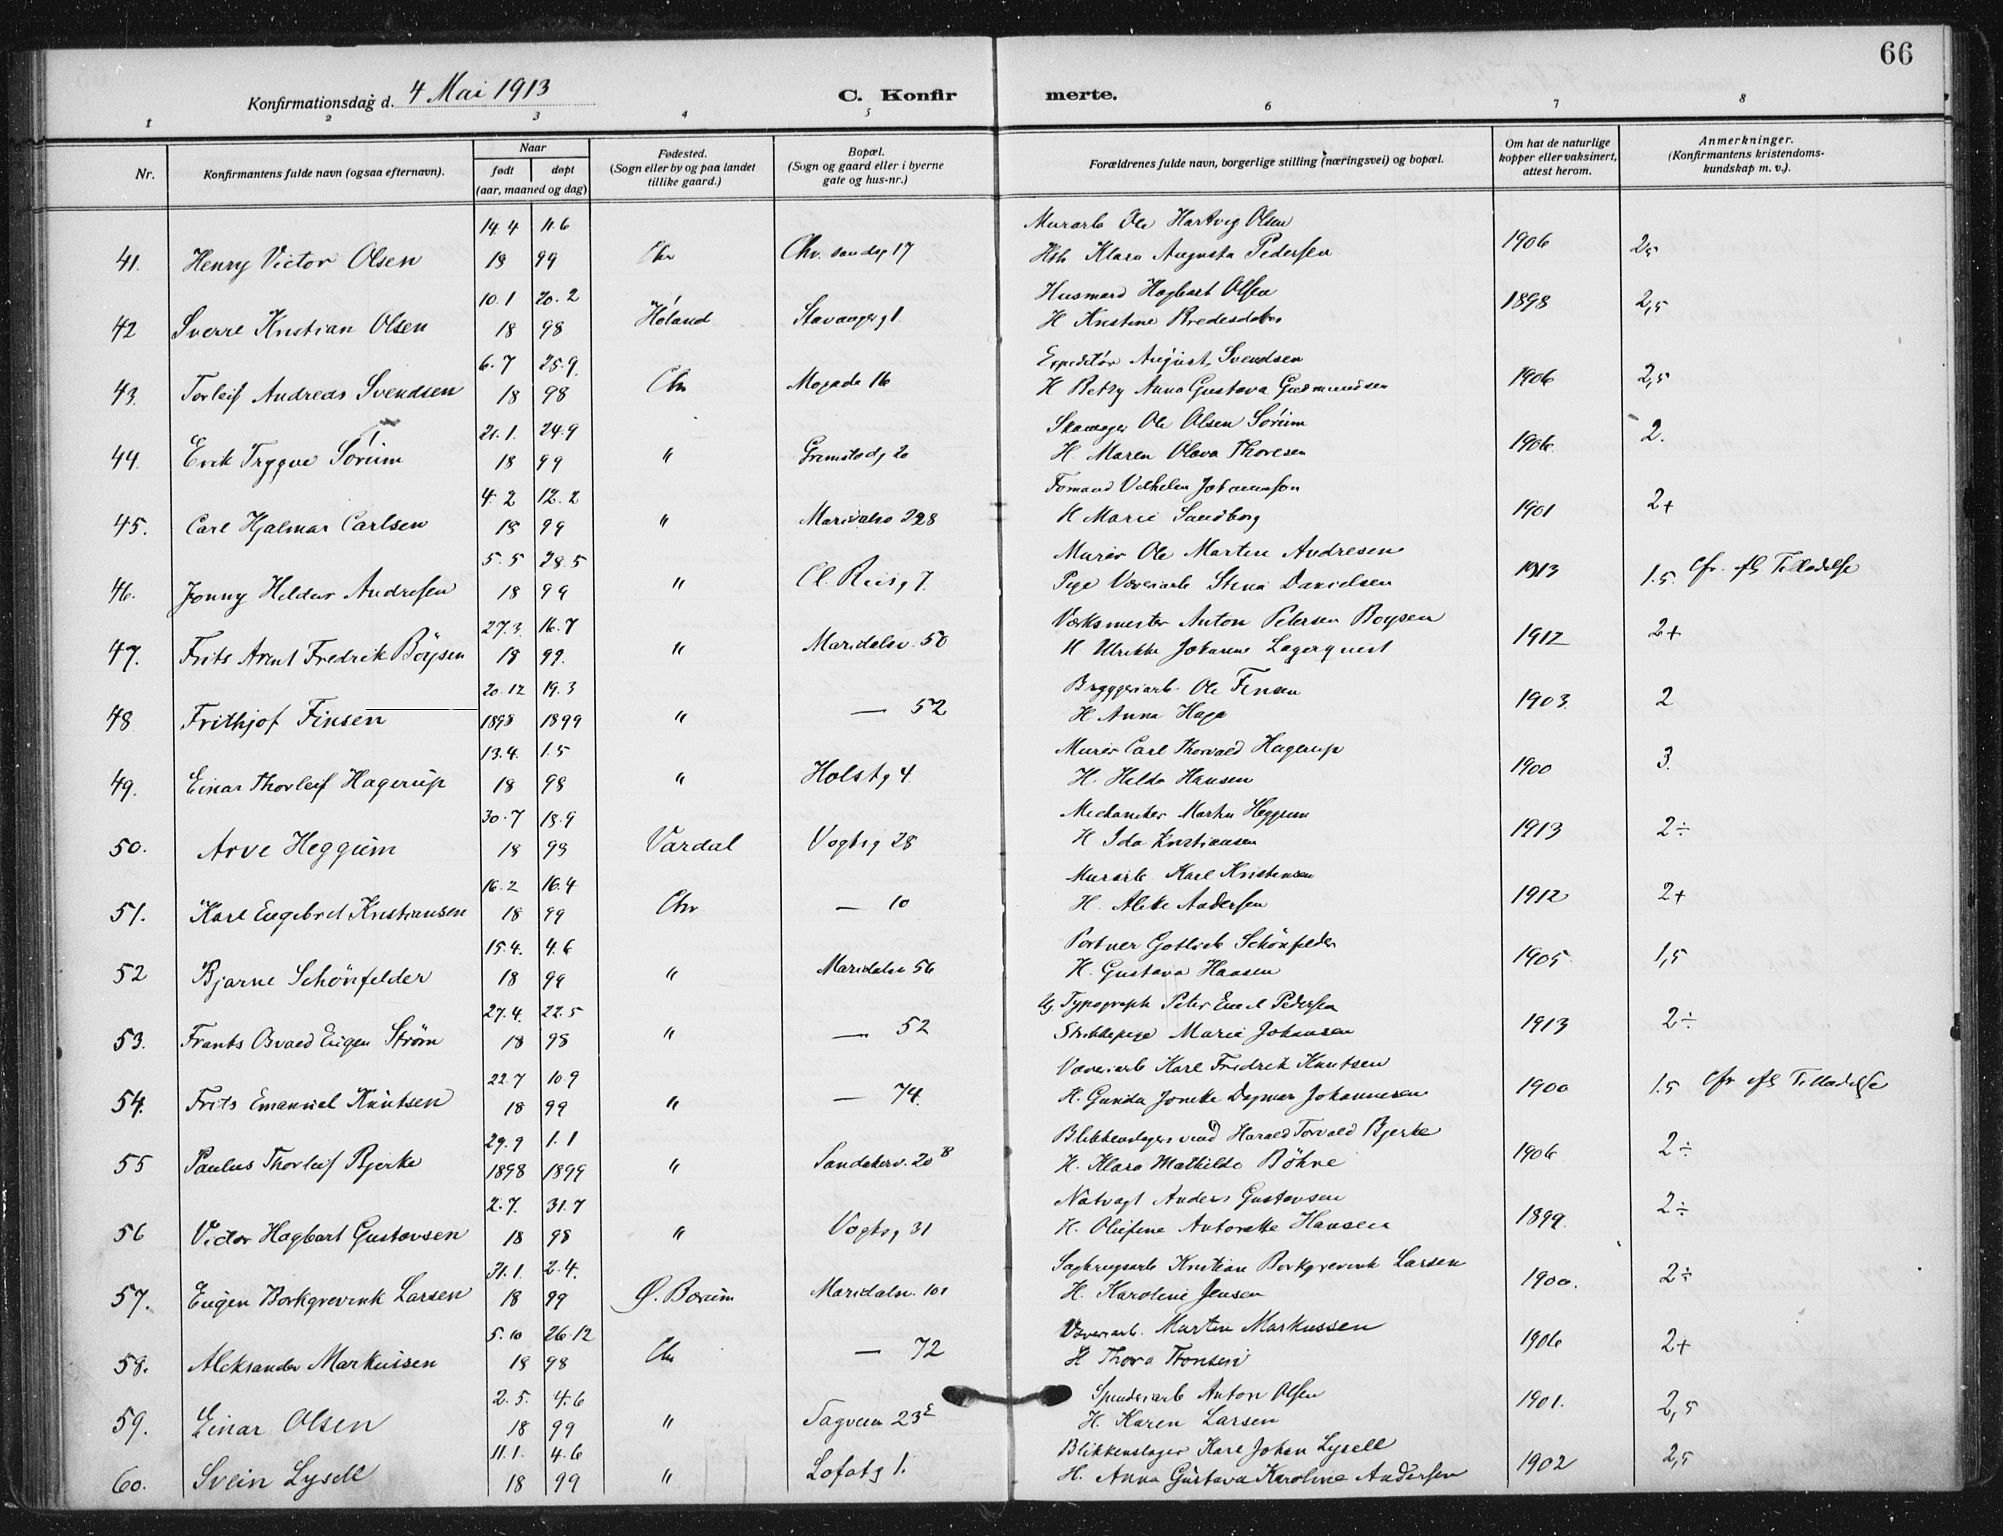 66
Konfirmationsdag d. 4 Mai 1913 C. Konfirmerte.
1 2 3 4 5 6 7 8
Nr. Konfirmantens fulde navn (ogsaa efternavn). Naar født døpt (aar, maaned og dag) Fødested. (Sogn eller by og paa landet tillike gaard.) Bopæl. (Sogn og gaard eller i byerne gate og hus-nr.) Forældrenes fulde navn, borgerlige stilling (næringsvei) og bopæl. Om hat de naturlige kopper eller vaksinert, attest herom. Anmerkninger. (Konfirmantens kristendomskundskap m. v.).
14.4 11.6 Murarb Ole Hartvig Olsen
41. Henry Victor Olsen 18 99 Chr Chr. sandsg 17 Hst. Klara Augusta Pedersen 1906 2,5
10.1 20.2 Husmand Hagbart Olsen
42 Sverre Kristian Olsen 18 98 Høland Stavangerg 1. H Kristine 1898 2,5
6.7 25.9. Expeditør August Svendsen
43. Torleif Andreas Svendsen 18 98 Chr Mogada 16 H Betzy Anna Gustava Gudmundsen 1906 2,5
21.1. 24.9 Ole Olsen Sørum
44. Erik Tryggve Sørum 18 99 " Grimstadg 20 H. Maren Olava Thoresen 1906. 2.
4.2 12.2 Formand Vilhelm
45. Carl Hjalmar Carlsen 18 99 " 228 H Marie Sandborg 1901 2+
5.5 28.5 Murer Ole Martin Andresen
46. Jonny Andresen 18 99 " Cl. Riisg 7. Pige Væveriarb Stina Danielsen 1913 1.5. Cfr. Tilladelse
27.3. 16.7 Anton Petersen Boysen
47. Frits Arent Fredrik Böysen 18 99. " Maridalsv. 50 H Ulrikke Johanne Lagerquist 1912 2+
20.12 19.3 Bryggeriarb. Ole Finsen
48 Frithjof Finsen 1898 1899 " — 52 H Anna Haga 1903. 2
13.4. 1.5 Murer Carl Thorvald Hagerup
49. Einar Thorleif Hagerup 18 98 " Holstg 4 H. Hilda Hansen 1900 3.
30.7 18.9 Mechaniker Martin Heggum
50. Arve Heggum 18 98 Vardal Vogtsg 28 H Ida Kristiansen 1913 2÷
16.2 16.4 Murarb Karl Kristiansen
51. Karl Engebret Kristiansen 18 99 Chr — 10 H. Andersen 1912 2+
15.4. 4.6 Portner Gotlieb Schönfelder
52 Bjarne Schönfelder 18 99 " Maridalsv 56 H. Gustava Hansen 1905 1,5
27.4. 22.5 Ug. Typograph Peter Emil Pedersen
53. Frants Osvald Eugen Strøm 18 98 " — 52 Strikkepige Marie Johansen 1913 2÷
22.7 10.9 Væveriarb Karl Fredrik Knutsen
54. Frits Emanuel Knutsen 18 99 " — 74. H. Gunda Dagmar Johannesen 1900 1.5 Cfr Tilladelse
29.9 1.1 Blikkenslagersvend Harald Torvald Bjerke
55 Paulus Thorleif Bjerke 1898 1899 " Sandakerv. 20 B H. Klara Mathilde Böhne 1906 2÷
2.7. 31.7 Natvagt Anders Gustavsen
56 Victor Hagbart Gustavsen 18 98 " Vogtsg 31 H. Olufine Antonette Hansen 1899. 2÷
31.1. 2.4. Sagbrugsarb Kristian Borkgrevink Larsen
57. Eugen Borkgrevink Larsen 18 99 Ø. Bærum Maridalsv. 101 H. Karoline Jensen 1900. 2÷
5.10 26.12 Væveriarb. Martin Markussen
58. Aleksander Markussen 18 98 Chr — 72 H Thora 1906 2+
2.5. 4.6 Spinderiarb Anton Olsen
59. Einar Olsen 18 99 " Sagveien 23 E H. Karen Larsen 1901. 2,5
11.1. 4.6 Blikkenslager Karl Johan Lysell
60. Svein Lysell 18 99 " Lofotg 1. H. Anna Gustava Karoline Andersen 1902 2,5